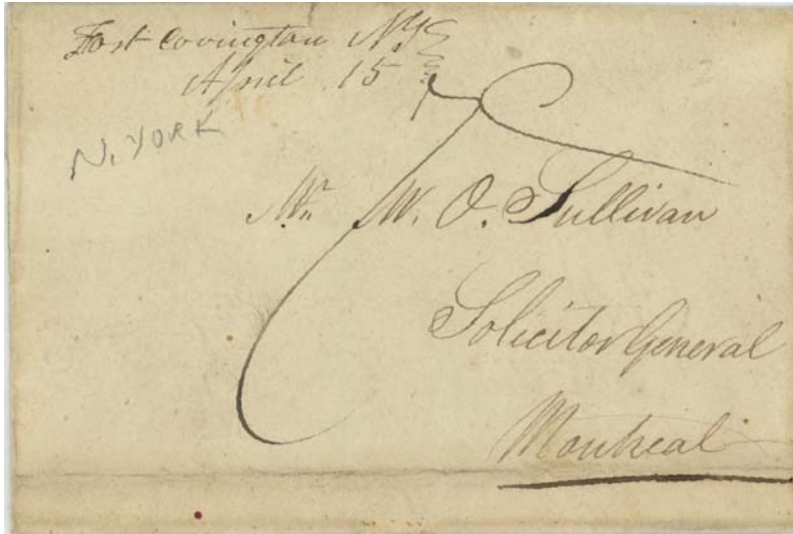 Fort Covington NY
April 15
N. YORK
Mr. M. O. Sullivan
Solicitor General
Montreal